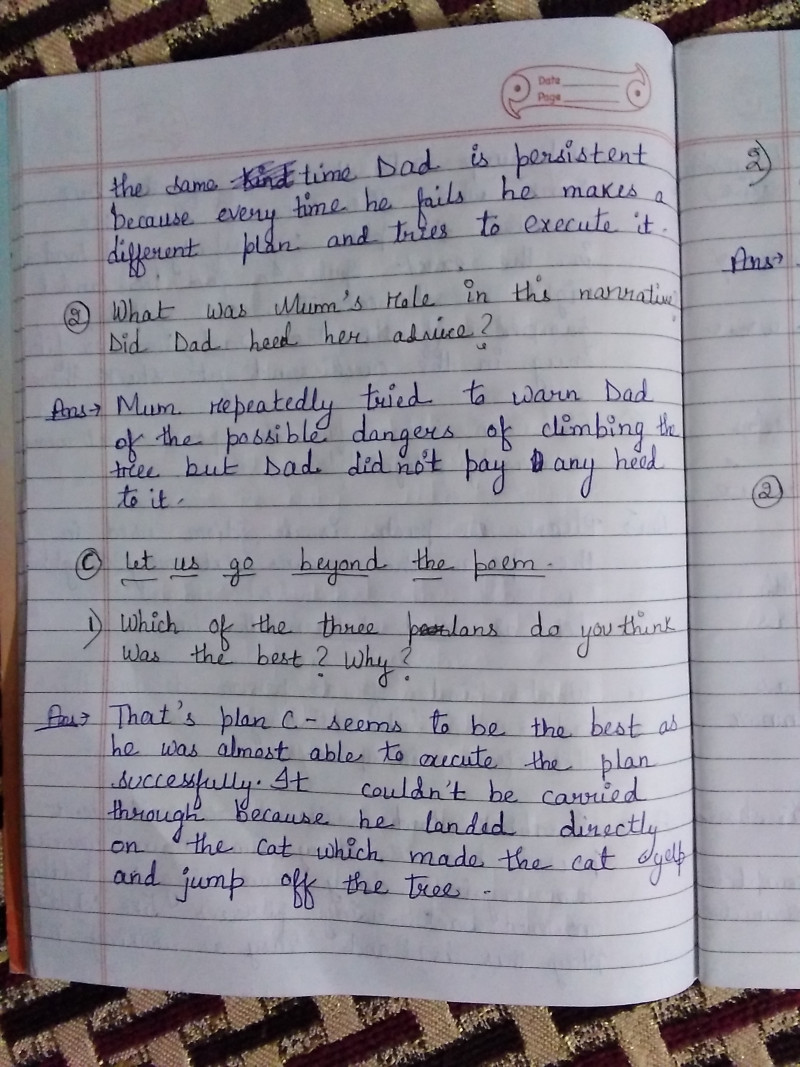 Date
Page
the same time Dad is persistent
because every time he fails he makes a
different plan and tries to execute it.
② What was Mum's role in this narrative
Did Dad heed her advice?
Ans→ Mum repeatedly tried to warn Dad
of the possible dangers of climbing the
tree but Dad did not pay any heed
to it.
Ⓒ Let us go beyond the poem.
i) Which of the three plans do you think
Was the best? Why?
Ans→ That's plan C - seems to be the best as
he was almost able to execute the plan
successfully. It couldn't be carried
through because he landed directly
on the cat which made the cat yelp
and jump off the tree.
2)
Ans→
②